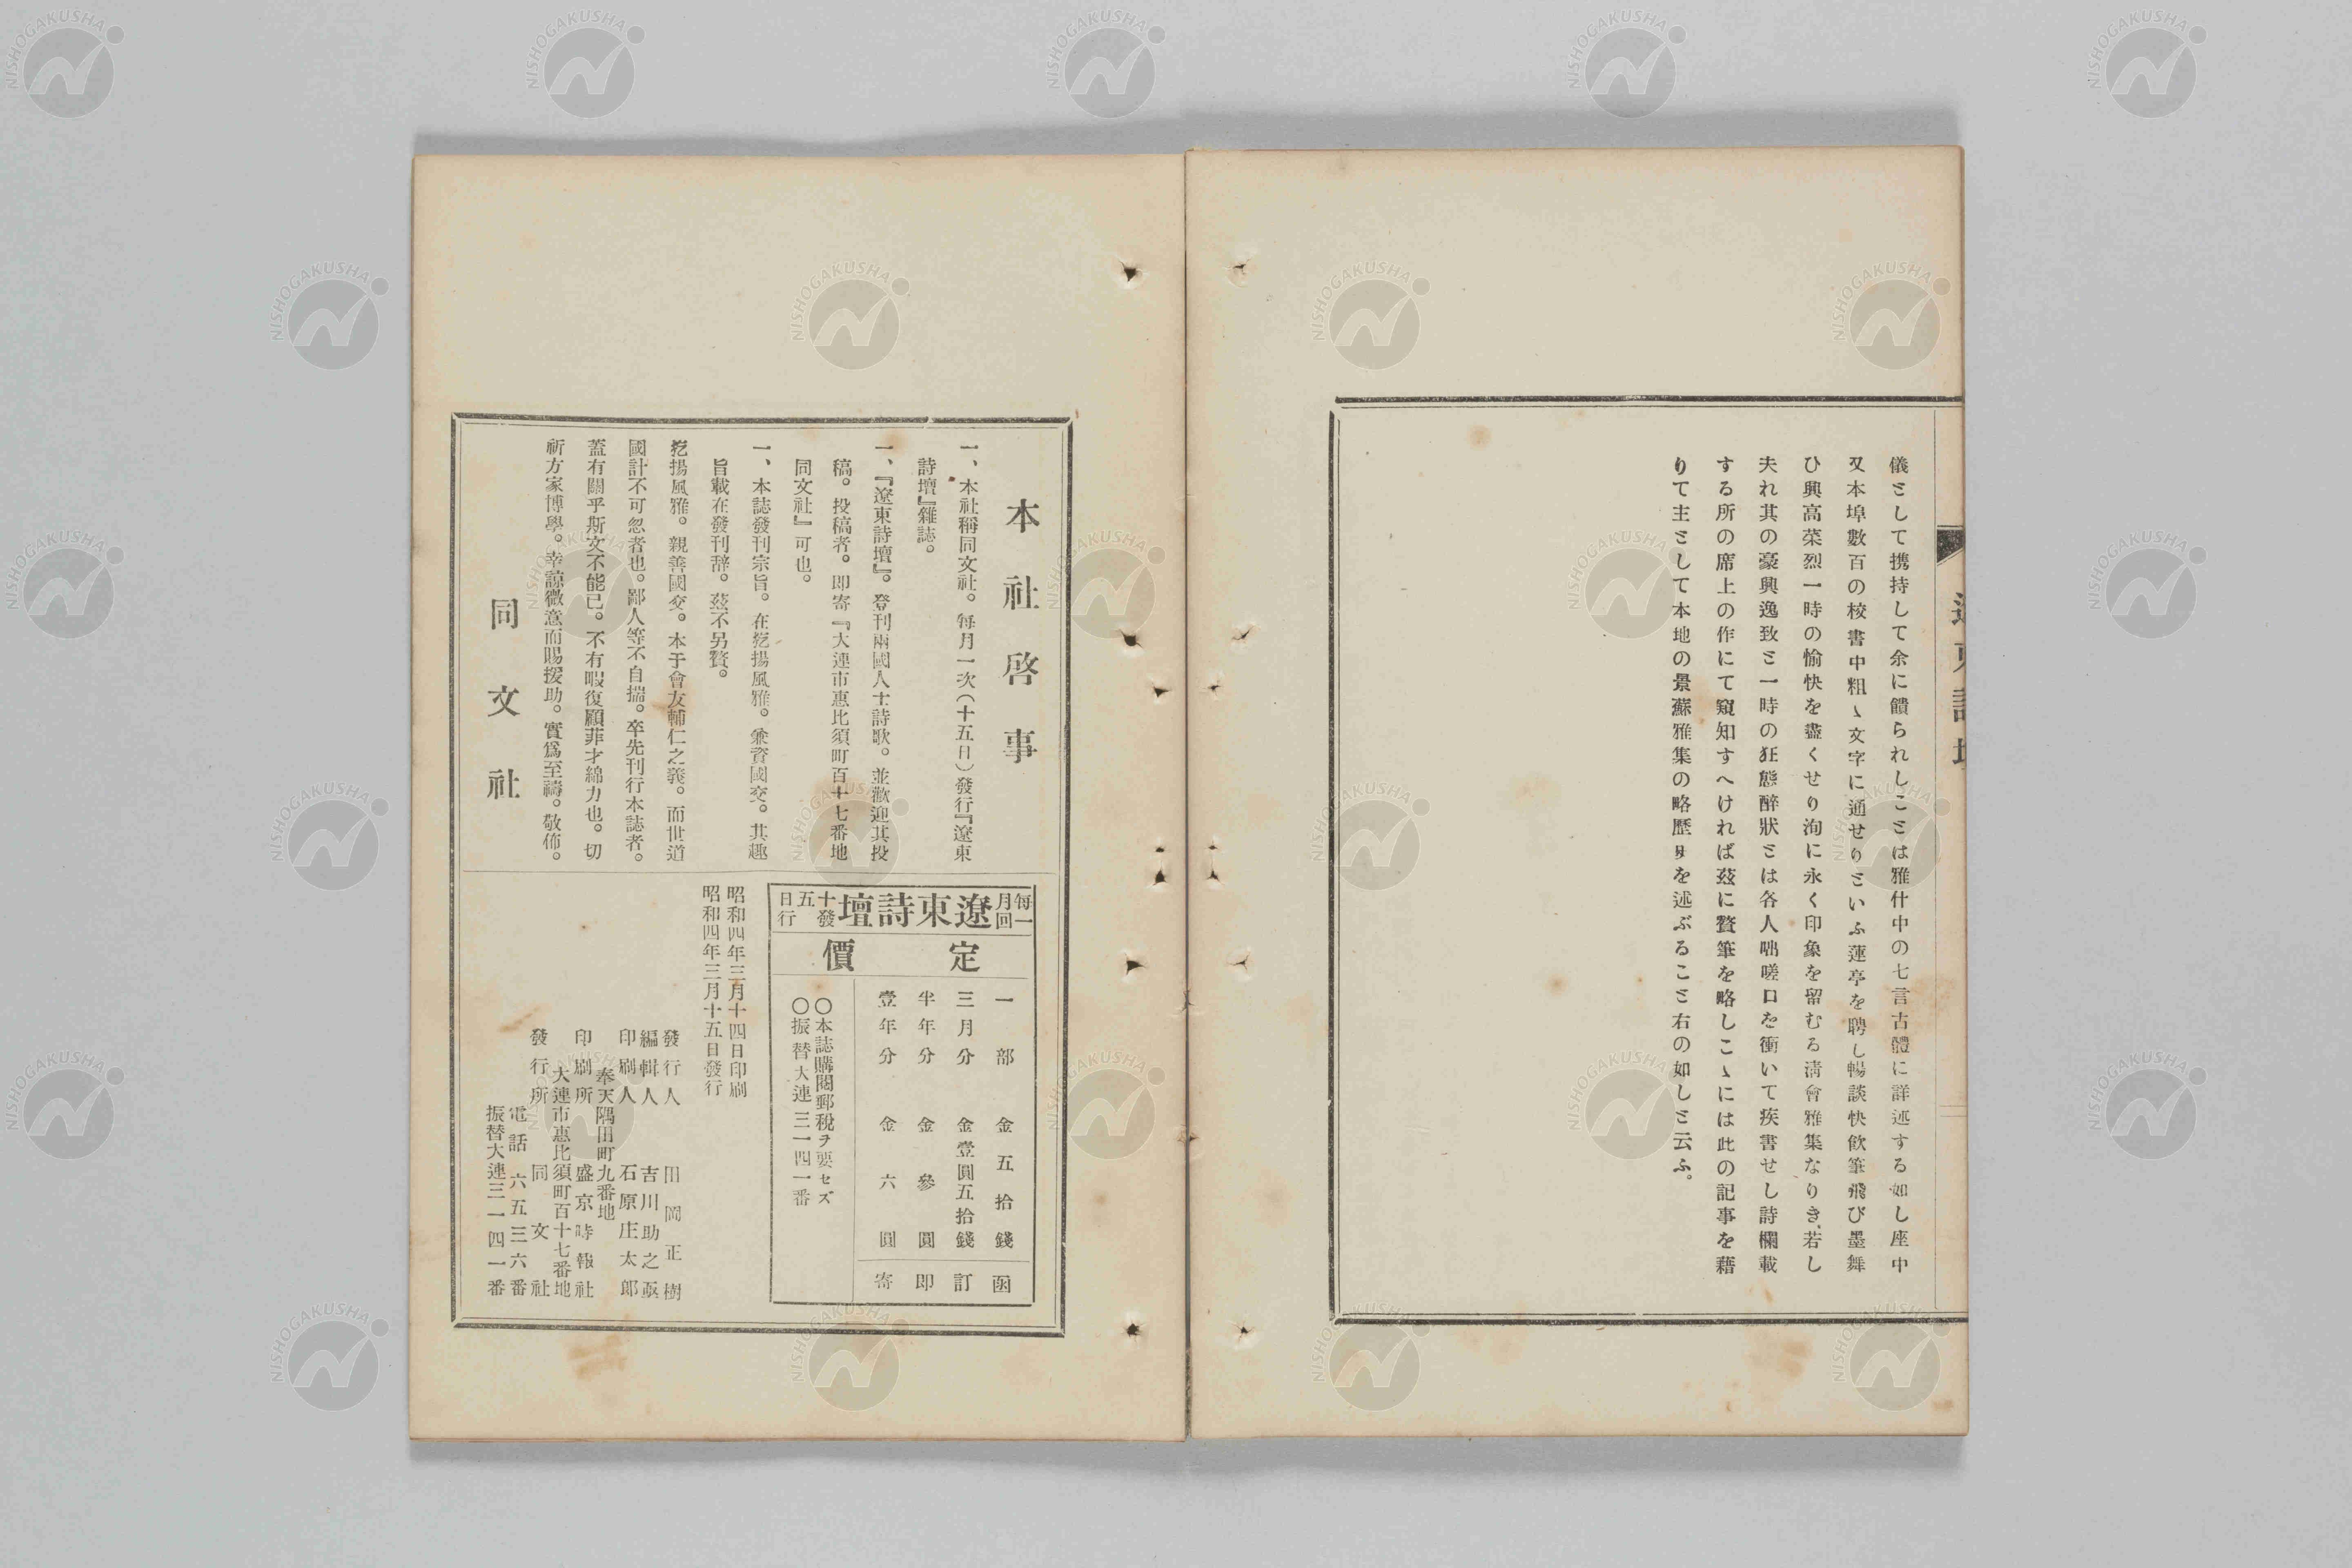 儀として携持して余に饋られしことは雅什中の七言古體に詳述する如し座中
又本埠數百の校書中粗〻文字に通せりといふ蓮亭を聘し暢談快飲筆飛び墨舞
ひ興高菜烈一時の愉快を盡くせり洵に永く印象を留むる淸會雅集なりき、若し
夫れ其の豪興逸致と一時の狂態醉狀とは各人咄嗟口を衝いて疾書せし詩欄載
する所の席上の作にて窺知すへければ玆に贅筆を略しこゝには此の記事を藉
りて主として本地の景蘇雅集の略歷を述ぶること右の如しと云ふ。
本社啓事
一、本社稱同文社。每月一次(十五日)發行『遼東
詩壇』雜誌。
一、『遼東詩壇』。登刊兩國人士詩歌。並歡迎其投
稿。投稿者。即寄『大連市惠比須町百十七番地
同文社』可也。
一、本誌發刊宗旨。在扢揚風雅。兼資國交。其趣
旨載在發刊辞。玆不另贅。
扢揚風雅。親善國交。本于會友輔仁之義。而世道
國計不可忽者也。鄙人等不自揣。卒先刊行本誌者。
蓋有關乎斯文不能已。不有暇復顧菲才綿力也。切
祈方家博學。幸諒微意而賜援助。實爲至禱。敬佈。
同文社
每月一回
遼東詩壇
十五日發行
定價
一部 金五拾錢 函
三月分 金壹圓五拾錢 訂
半年分 金參圓 即
壹年分 金六圓 寄
〇本誌購閱郵稅ヲ要セズ
〇振替大連三一四一番
昭和四年三月十四日印刷
昭和四年三月十五日發行
發行人 田岡正樹
編輯人 吉川助之亟
印刷人 石原庄太郎
奉天隅田町九番地
印刷所 盛京時報社
大連市惠比須町百十七番地
發行所 同文社
電話六五三六番
振替大連三一四一番
NISHOGAKUSHA